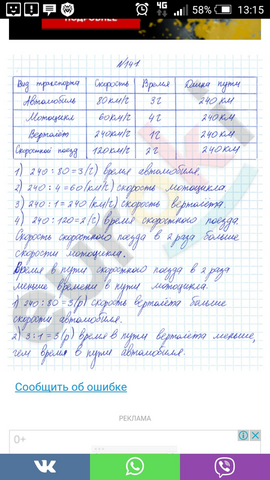 4G
58%
13:15
ПОДРОБНЕЕ
№141
Вид транспорта Скорость Время Длина пути
Автомобиль 80км/ч 3ч 240 км
Мотоцикл 60км/ч 4ч 240км
Вертолёт 240км/ч 1ч 240км
Скоростной поезд 120км/ч 2ч 240км
1) 240 : 80 = 3(ч) время автомобиля.
2) 240 : 4 = 60 (км/ч) скорость мотоцикла.
3) 240 : 1 = 240 (км/ч) скорость вертолёта.
4) 240 : 120 = 2(ч) время скоростного поезда
Скорость скоростного поезда в 2 раза больше
скорости мотоцикла.
Время в пути скоростного поезда в 2 раза
меньше времени в пути мотоцикла.
1) 240 : 80 = 3(р) скорость вертолёта больше
скорости автомобиля.
2) 3 : 1 = 3(р) время в пути вертолёта меньше,
чем время в пути автомобиля.
Сообщить об ошибке
РЕКЛАМА
0+